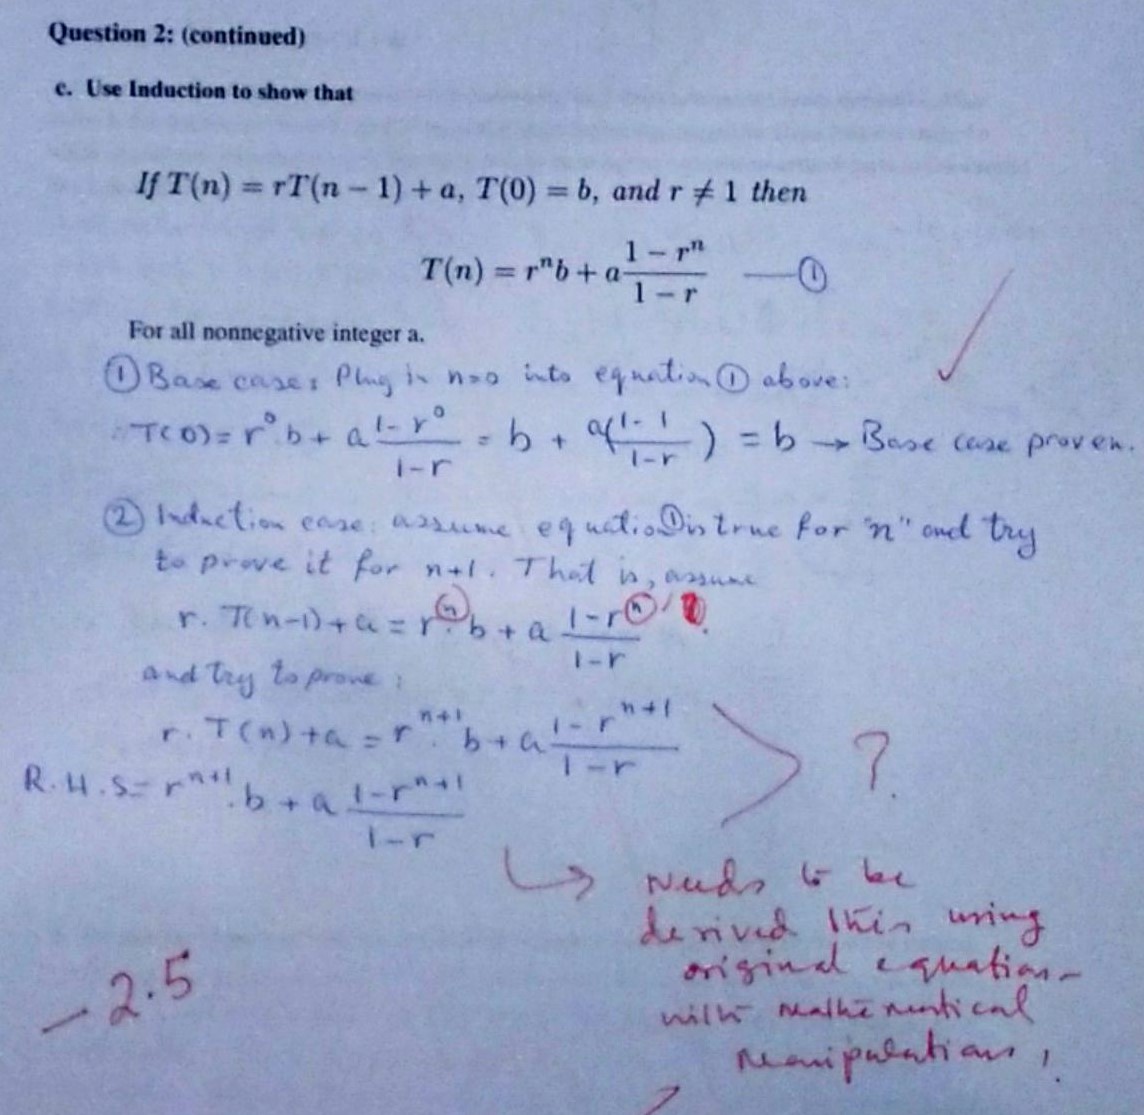 Question 2: (continued)
c. Use Induction to show that
If T(n) = rT(n − 1) + a, T(0) = b, and r ≠ 1 then
T(n) = rⁿb + a (1 − rⁿ)/(1 − r) — ①
For all nonnegative integer a.
① Base case: Plug in n=0 into equation ① above:
T(0) = r⁰·b + a (1 - r⁰)/(1-r) = b + a((1-1)/(1-r)) = b → Base case proven.
② Induction case: assume equatio ① is true for "n" and try
to prove it for n+1. That is, assume
r. T(n-1) + a = rⁿ· b + a (1-rⁿ)/(1-r)
and try to prove:
r. T(n) + a = rⁿ⁺¹· b + a (1 - rⁿ⁺¹)/(1-r) ?
R.H.S = rⁿ⁺¹· b + a (1-rⁿ⁺¹)/(1-r)
↳ Needs to be
derived this using
original equation -
with mathematical
manipulations,
-2.5